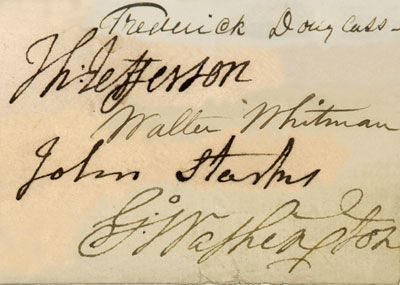 Frederick Douglass
Th. Jefferson
Walter Whitman
John Starks
G. Washington